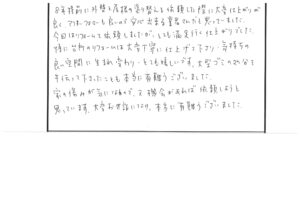 8年程前に外壁と屋根の塗り替えを依頼した際に大変仕上がりが
良く、又リフォームも良いのが出来る業者さんだと思っていました。
今回はリフォームで依頼しましたが、とても満足行く仕上がりでした。
特に台所のリフォームは大変丁寧に仕上げて下さり、気持ちの
良い空間に生まれ変わり、とても嬉しいです。大型ゴミの処分まで
手伝って下さったことも本当に有難うございました。
家の傷みが気になるので、又機会があれば依頼しようと
思っています。大変お世話になり、本当に有難うございました。